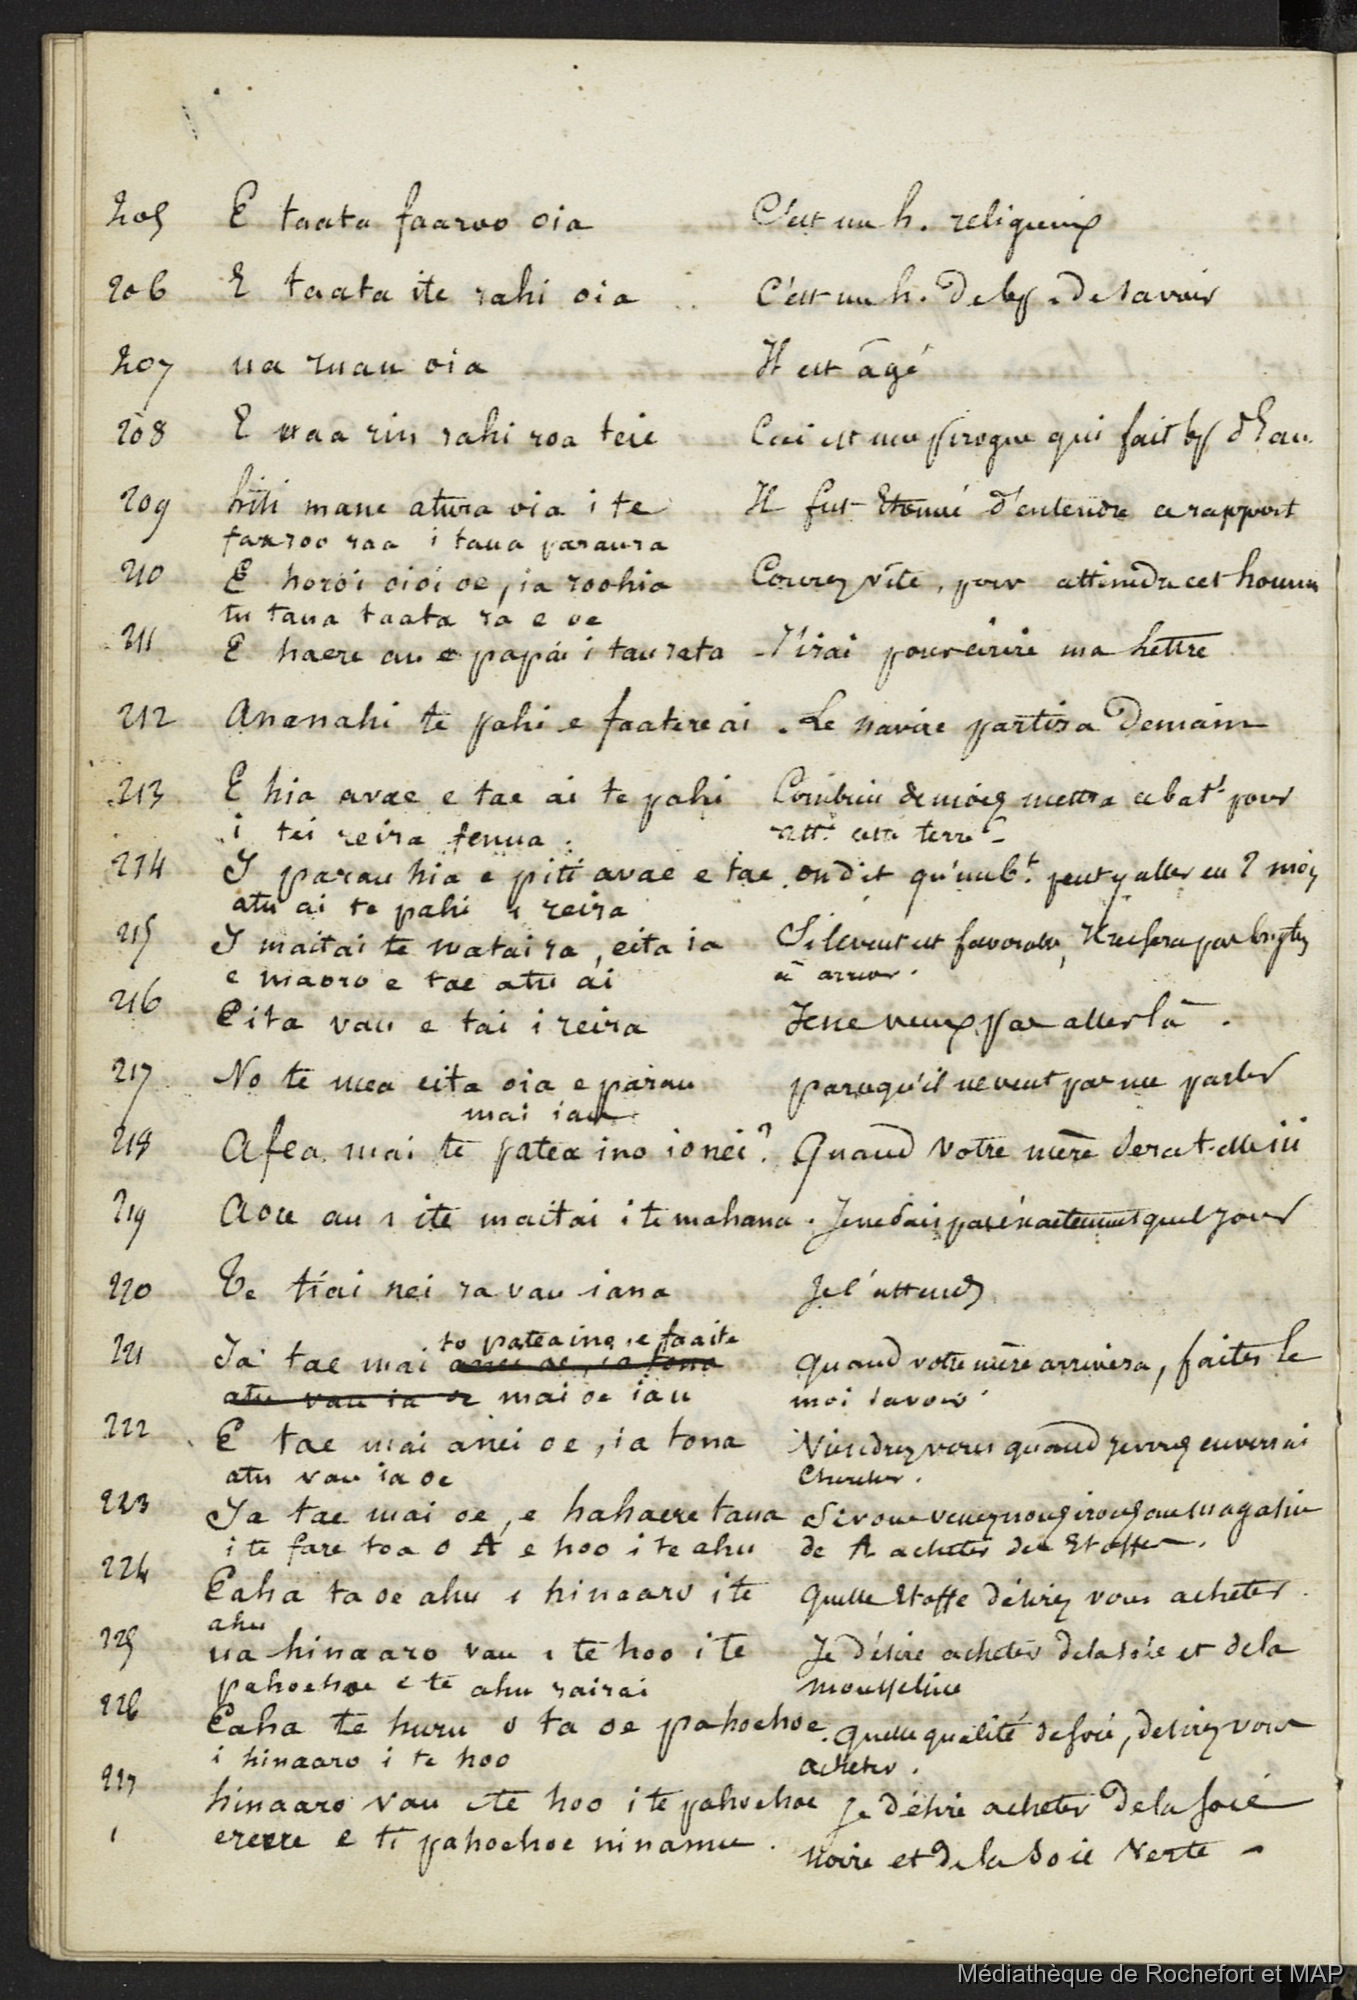 205 E taata faaroo oia C'est un h. religieux
206 E taata ite rahi oia C'est un h. de bp. de savoir
207 ua ruau oia Il est âgé
208 E vaa riu rahi roa teie Ceci est une pirogue qui fait bp d'Eau.
209 hiti maue atura oia i te Il fut Etonné d'entendre ce rapport
faaroo raa i taua paraura
210 E horo'i oioi oe, ia roohia Courez vîte, pour atteindre cet homme
tu taua taata ra e oe
211 E haere au e papai i tau rata J'irai pour écrire ma lettre
212 Ananahi te pahi e faatere ai . Le navire partira Demain
213 E hia avae e tae ai te pahi Combien de mois mettra ce bat.t pour
i tei reira fenua. att. cette terre -
214 I parau hia e piti avae e tae . on dit qu'un b.t peut y aller en 2 mois
atu ai te pahi i reira
215 I maitai te matai ra, eita ia Si le vent est favorable, Il ne sera pas longtps
e maoro e tae atu ai à arriver.
216 Eita vau e tai i reira Je ne veux pas aller là.
217 No te mea eita oia e parau parcequ'il ne veut pas me parler
mai iau
218 Afea mai te patea ino ionei? Quand votre mère sera t-elle ici
219 Aoue au i ite maitai i te mahana . Je ne sais pas éxactement quel jour
220 Te tiai nei ra vau iana Je l'attends
to pateaino, e faaite
221 Ia tae mai anei oe, ia tona quand votre mère arrivera, faites le
atu vau ia oe mai oe iau moi savoir
222 E tae mai anei oe, ia tona Viendrez vous quand j'enverrai
atu vau ia oe chercher.
223 Ia tae mai oe, e hahaere taua Si vous venez nous irons au magasin
i te fare toa o A e hoo i te ahu de A acheter des Etoffes.
224 Eaha ta oe ahu i hinaaro i te quelle Etoffe désirez vous acheter
ahu
225 ua hinaaro vau i te hoo i te Je désire acheter de la soie et de la
pahoehoe e te ahu rairai mousseline
226 Eaha te huru o ta oe pahoehoe . quelle qualité de soie, desirez vous
i hinaaro i te hoo acheter.
227 hinaaro vau ite hoo i te pahoehoe je désire acheter de la soie
ereere e te pahoehoe ninamu . noire et de la soie verte -
Médiathèque de Rochefort et MAP